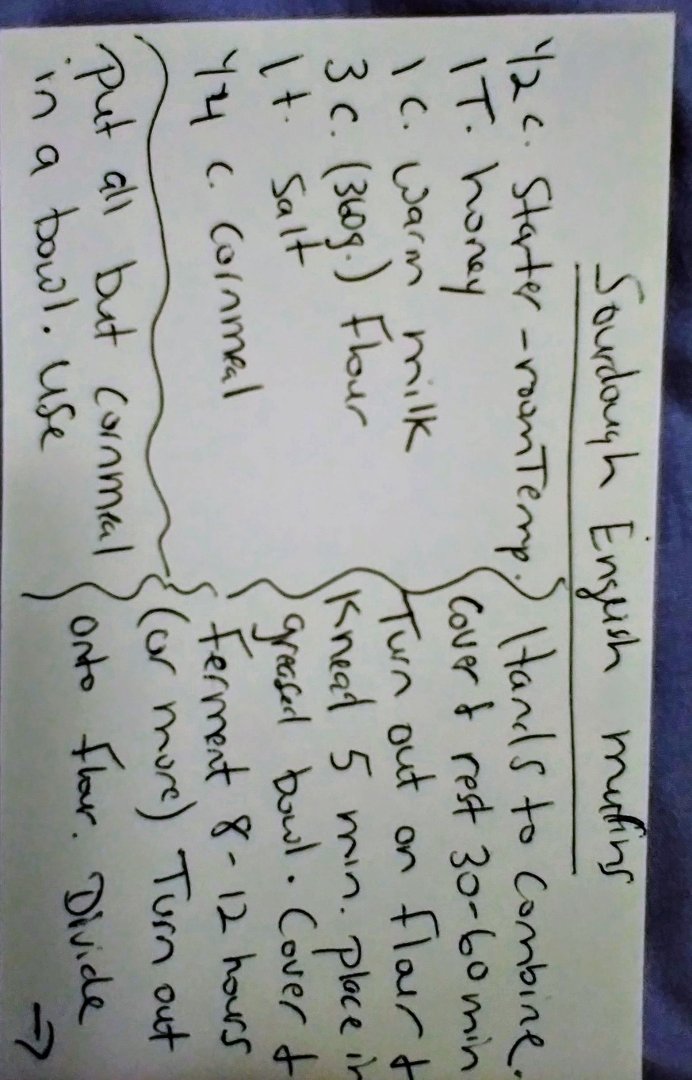 Sourdough English muffins
1/2 c. Starter - room Temp.
1 T. honey
1 c. warm milk
3 c. (360g.) flour
1 t. Salt
1/4 c. cornmeal
Put all but cornmeal
in a bowl. Use
Hands to combine.
Cover & rest 30-60 min
Turn out on flour &
Knead 5 min. place in
greased bowl. Cover &
ferment 8-12 hours
(or more) Turn out
onto flour. Divide
→